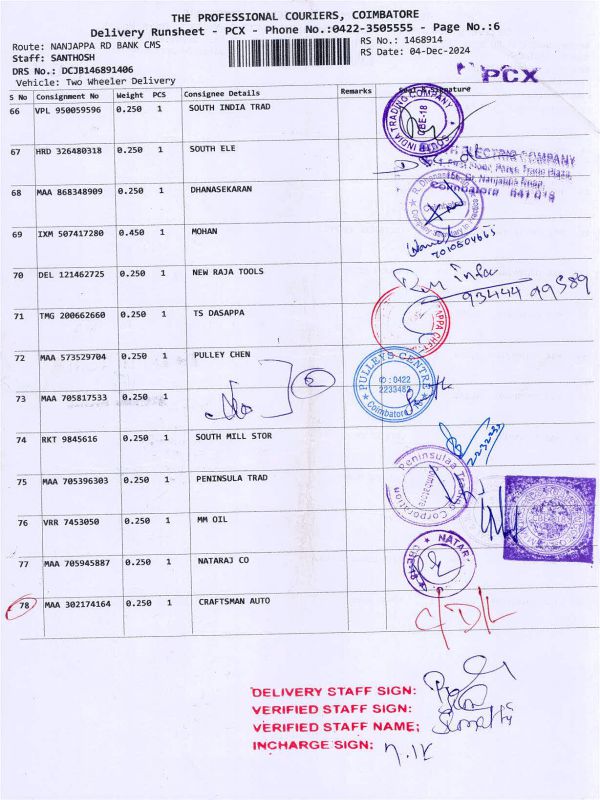 THE PROFESSIONAL COURIERS, COIMBATORE
Delivery Runsheet - PCX - Phone No.:0422-3505555 - Page No.:6
Route: NANJAPPA RD BANK CMS
RS No.: 1468914
Staff: SANTHOSH
RS Date: 04-Dec-2024
DRS No.: DCJB146891406
PCX
Vehicle: Two Wheeler Delivery
S No Consignment No Weight PCS Consignee Details Remarks Seal & Signature
66 VPL 950059596 0.250 1 SOUTH INDIA TRAD
INDIA TRADING COMPANY
67 HRD 326480318 0.250 1 SOUTH ELE
ELECTRIC COMPANY
Coimbatore 641 018
68 MAA 868348909 0.250 1 DHANASEKARAN
69 IXM 507417280 0.450 1 MOHAN
7010804665
70 DEL 121462725 0.250 1 NEW RAJA TOOLS
93444 99589
71 TMG 200662660 0.250 1 TS DASAPPA
72 MAA 573529704 0.250 1 PULLEY CHEN
PULLEYS CENTRE
: 0422
2233482
Coimbatore
73 MAA 705817533 0.250 1
74 RKT 9845616 0.250 1 SOUTH MILL STOR
75 MAA 705396303 0.250 1 PENINSULA TRAD
Peninsulaa Trading Corporation
76 VRR 7453050 0.250 1 MM OIL
77 MAA 705945887 0.250 1 NATARAJ CO
NATAR
78 MAA 302174164 0.250 1 CRAFTSMAN AUTO
C/D/L
DELIVERY STAFF SIGN:
VERIFIED STAFF SIGN:
VERIFIED STAFF NAME;
INCHARGE SIGN: